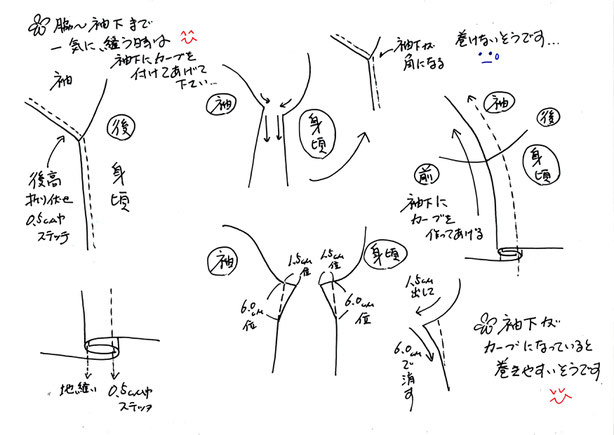 脇〜袖下まで
一気に縫う時は
袖下にカーブを
付けてあげて
下さい…
袖
後
身
頃
後高
折り伏せ
0.5cm巾
ステッチ
地縫い
0.5cm巾
ステッチ
袖
身
頃
袖下が
角になる
巻けないそうです…
袖
後
前
身
頃
袖下に
カーブを
作ってあげる
袖
1.5cm
位
1.5cm
位
身頃
6.0cm
位
6.0cm
位
1.5cm
出して
6.0cm
で
消
す
袖下が
カーブになっていると
巻きやすいそうです